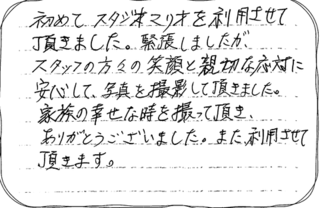 初めて スタジオマリオを利用させて
頂きました。緊張しましたが、
スタッフの方々の笑顔と親切な応対に
安心して、写真を撮影して頂きました。
家族の幸せな時を撮って頂き、
ありがとうございました。また利用させて
頂きます。